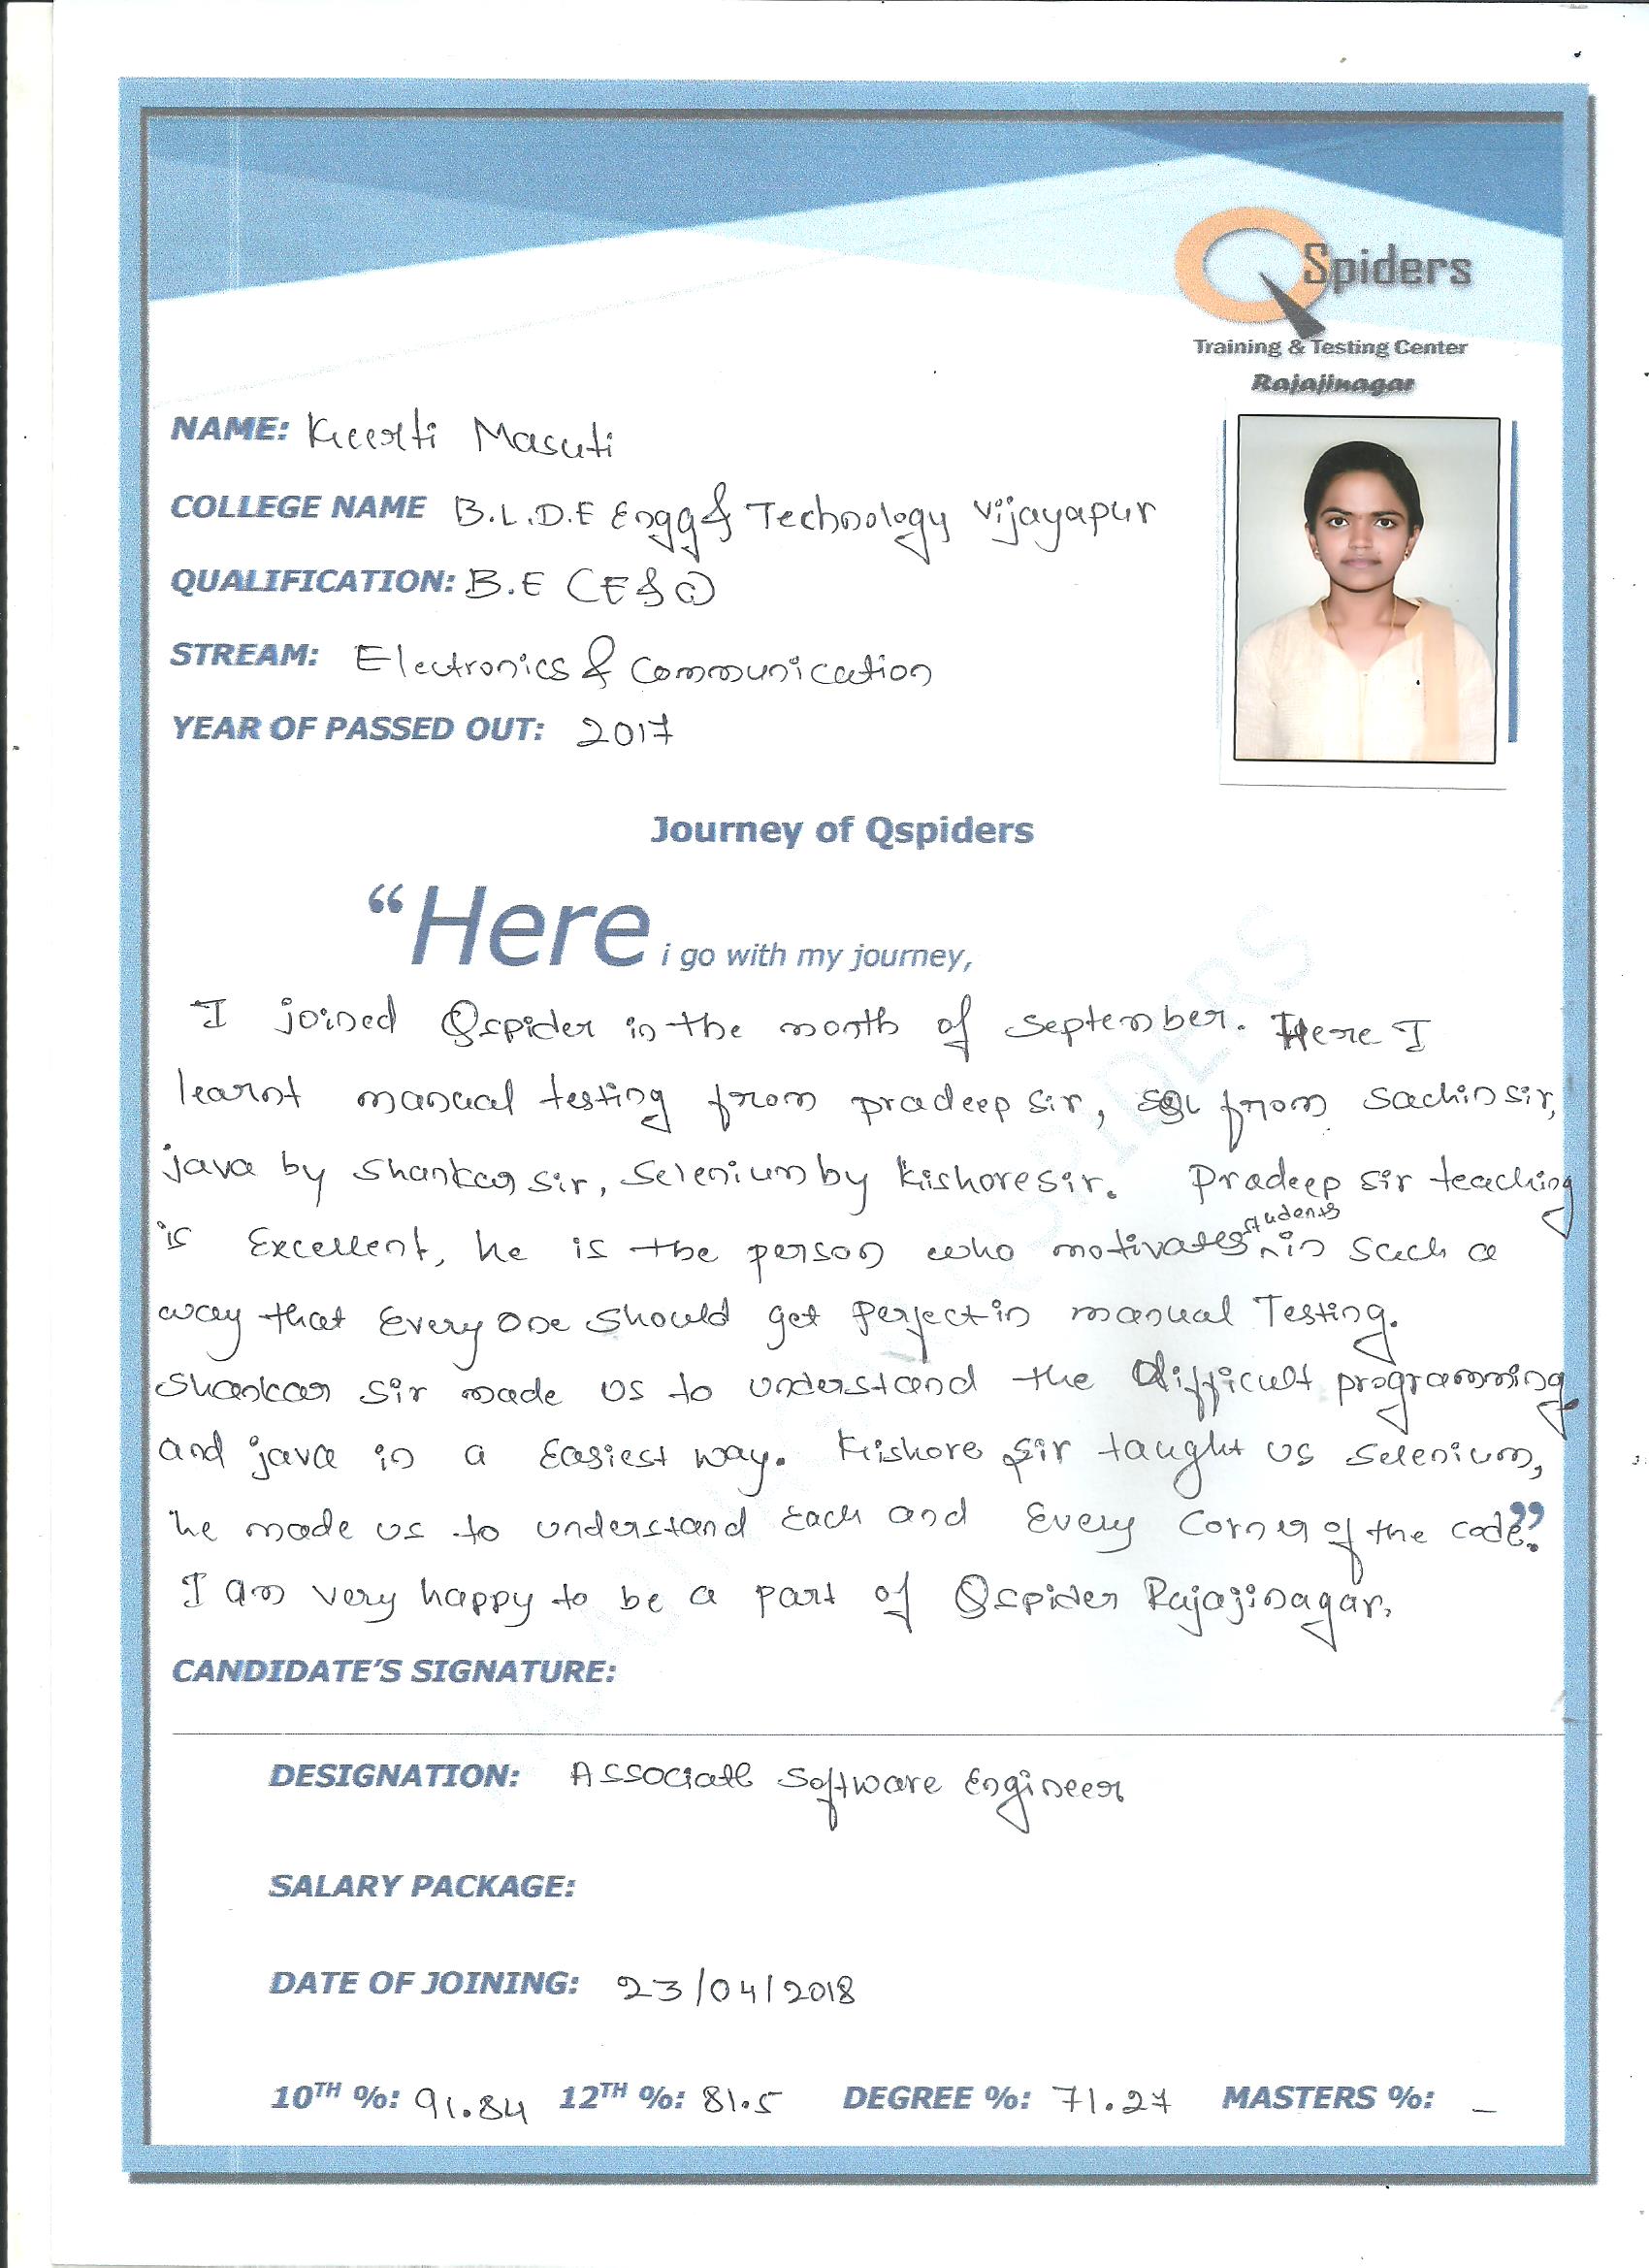 QSpiders
Training & Testing Center
Rajajinagar
NAME: Keerti Masuti
COLLEGE NAME B.L.D.E Engg & Technology Vijayapur
QUALIFICATION: B.E (E&C)
STREAM: Electronics & Communication
YEAR OF PASSED OUT: 2017
Journey of Qspiders
“Here i go with my journey,
I joined Qspider in the month of September. Here I
learnt manual testing from pradeep sir, SQL from Sachin sir,
java by Shankar sir, Selenium by Kishore sir. Pradeep sir teaching
is Excellent, he is the person who motivates students in such a
way that Every one should get perfect in manual Testing.
Shankar sir made us to understand the difficult programming
and java in a Easiest way. Kishore sir taught us Selenium,
he made us to understand Each and Every Corner of the code.”
I am very happy to be a part of Qspider Rajajinagar.
CANDIDATE’S SIGNATURE:
DESIGNATION: Associate Software Engineer
SALARY PACKAGE:
DATE OF JOINING: 23/04/2018
10TH %: 91.84 12TH %: 81.5 DEGREE %: 71.27 MASTERS %: –